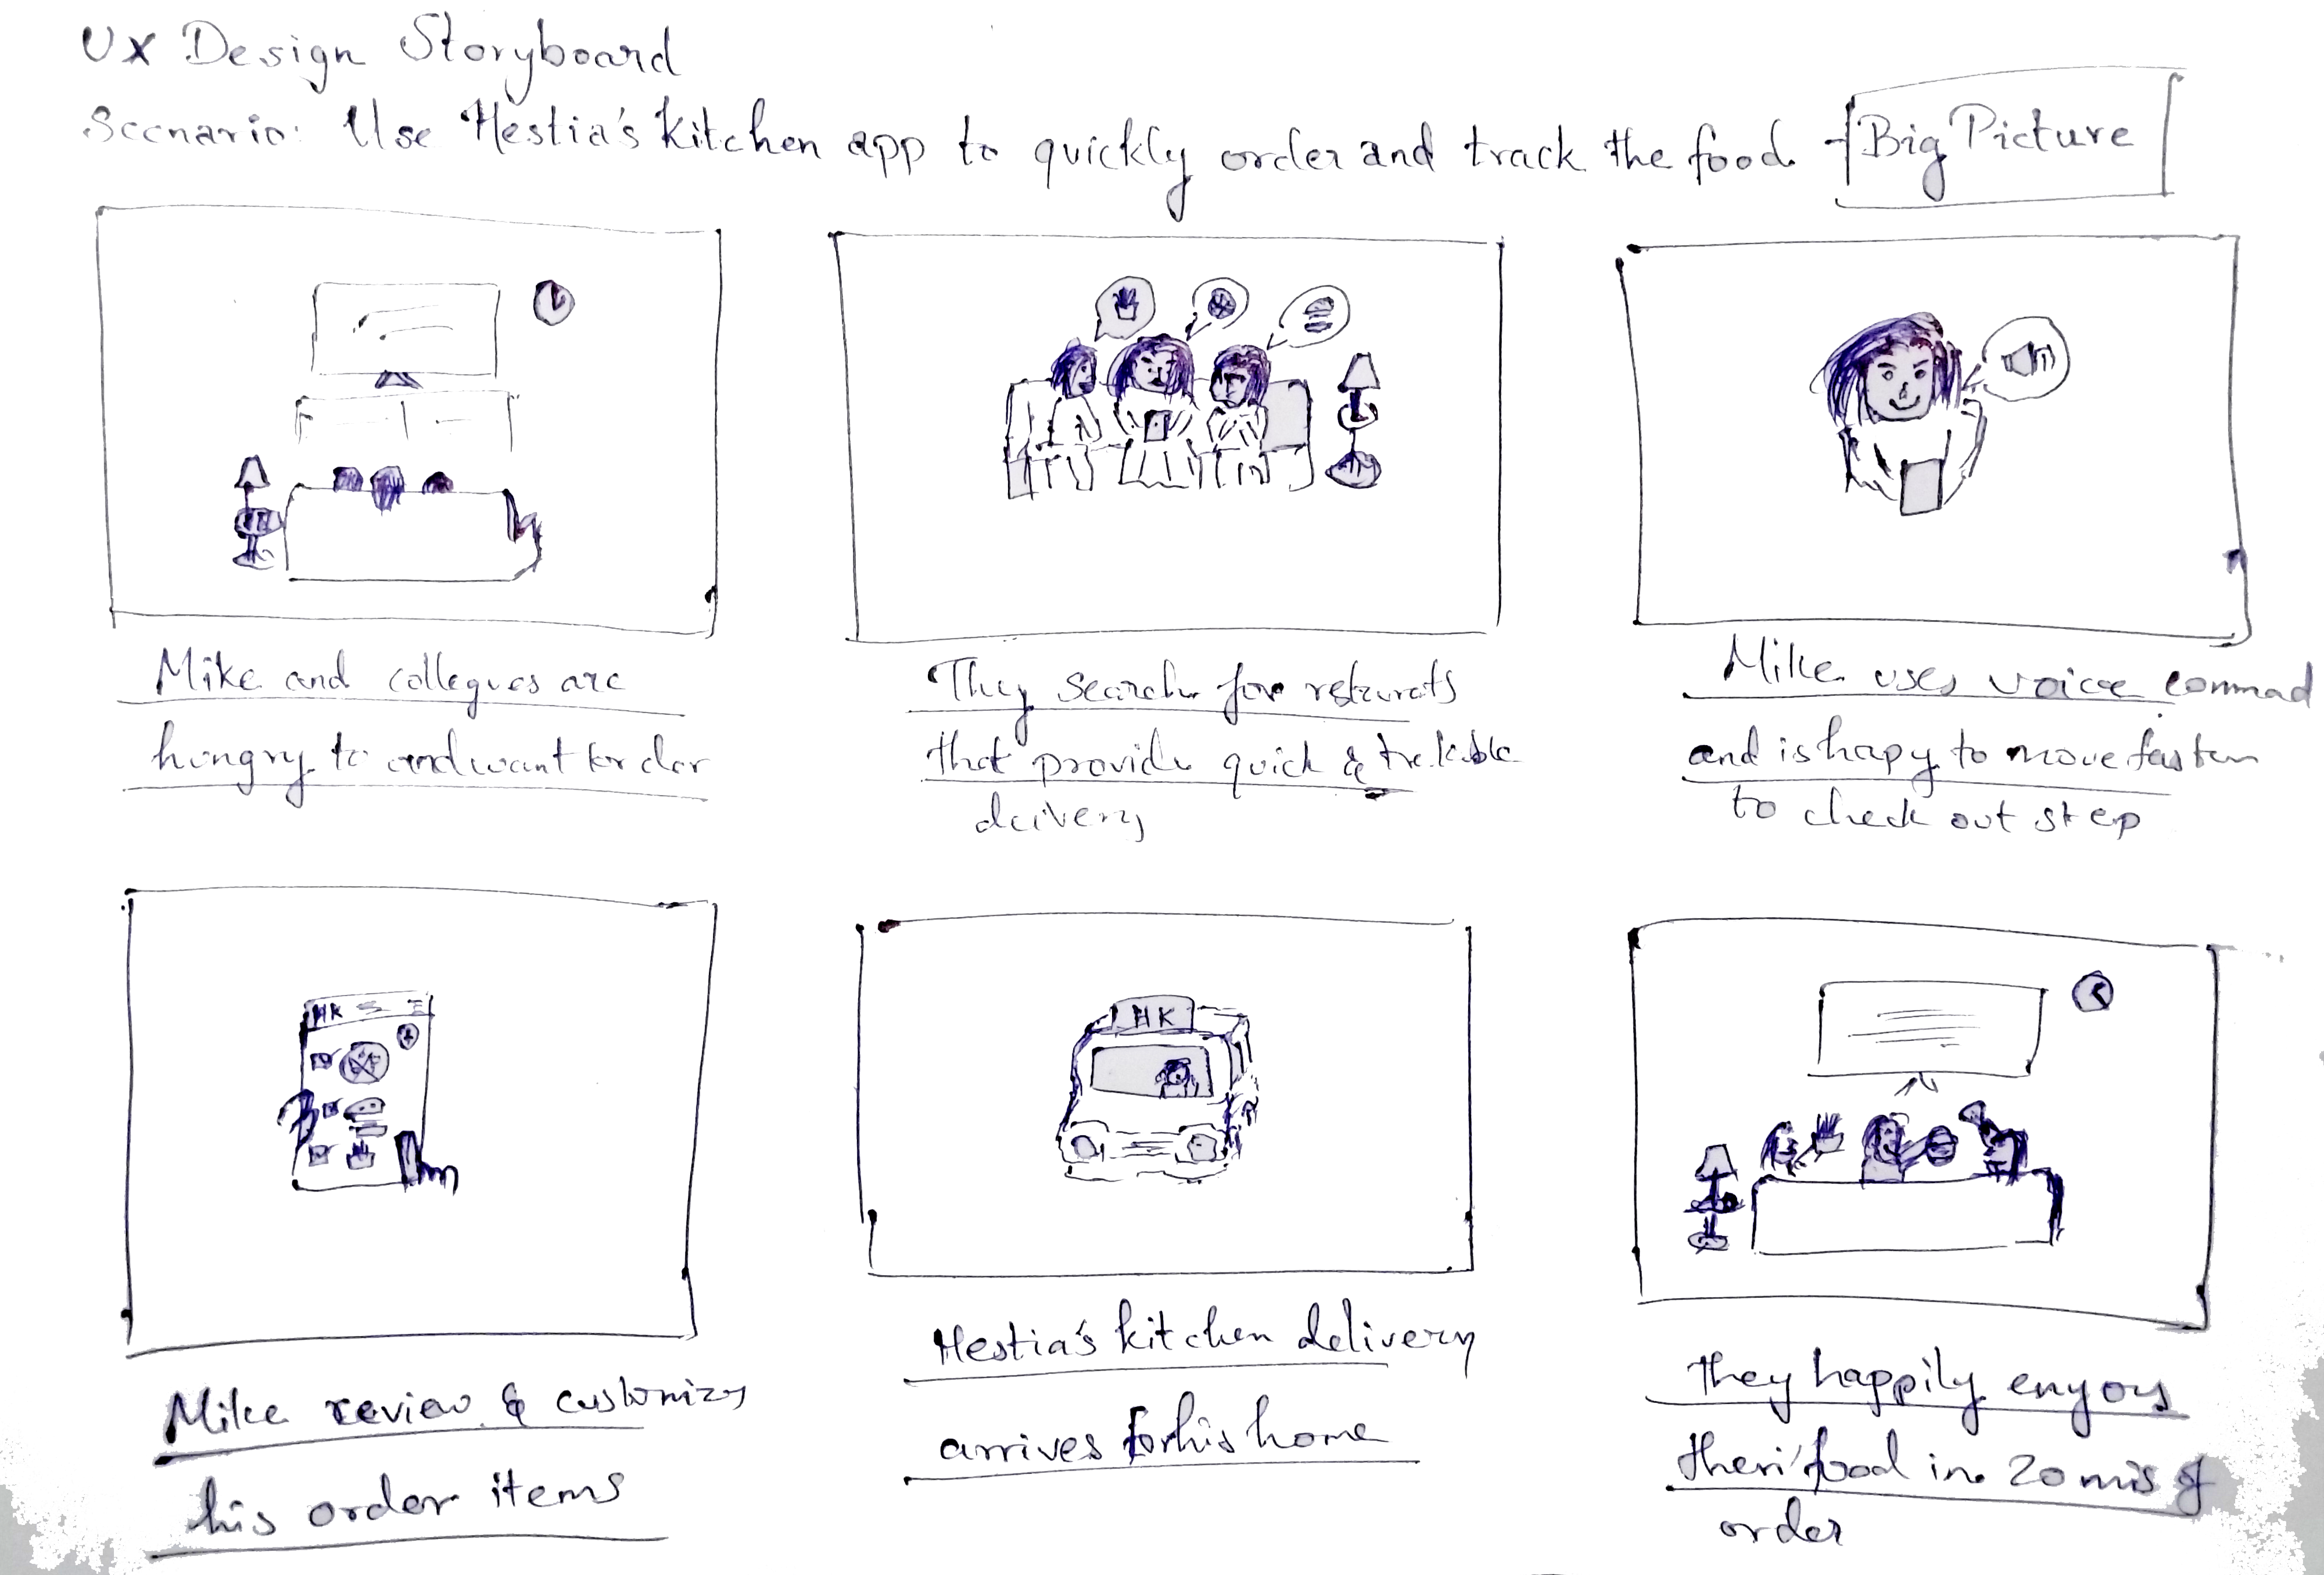 UX Design Storyboard
Scenario: Use Hestia's Kitchen app to quickly order and track the food - Big Picture
Mike and collegues are
hungry to and want to order
They search for
that provide quick &
delivery
Mike uses voice commad
and is hapy to move faster
to check out step
HK
HK
Mike review & customizs
his order items
Hestia's kitchen delivery
arrives for his home
They happily enyoys
theri food in 20 mis of
order